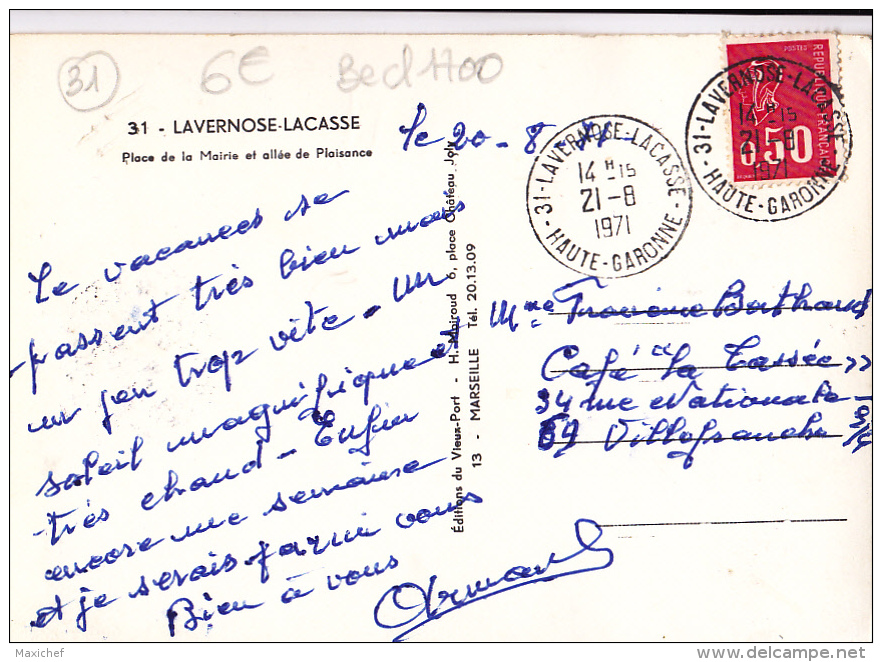 31
6€
Becl 1700
31 - LAVERNOSE-LACASSE
Place de la Mairie et allée de Plaisance
le 20-8-71-
Le vacances se
passent très bien mais
un peu trop vite - Un
soleil magnifique et
très chaud - Enfin
encore une semaine
et je serais parmi vous
Bien à vous
Armand
Editions du Vieux-Port - H. Mairoud 6, place Château Joly
13 - MARSEILLE Tél. 20.13.09
31-LAVERNOSE-LACASSE
14 H -15
21-8
1971
HAUTE-GARONNE
POSTES
REPUBLIQUE FRANÇAISE
0,50
31-LAVERNOSE-LACASSE
14 H -15
21-8
1971
HAUTE-GARONNE
Mme
Café "La Tassée"
34 rue Nationale
69 Villefranche s/
Maxichef
delcampe.net